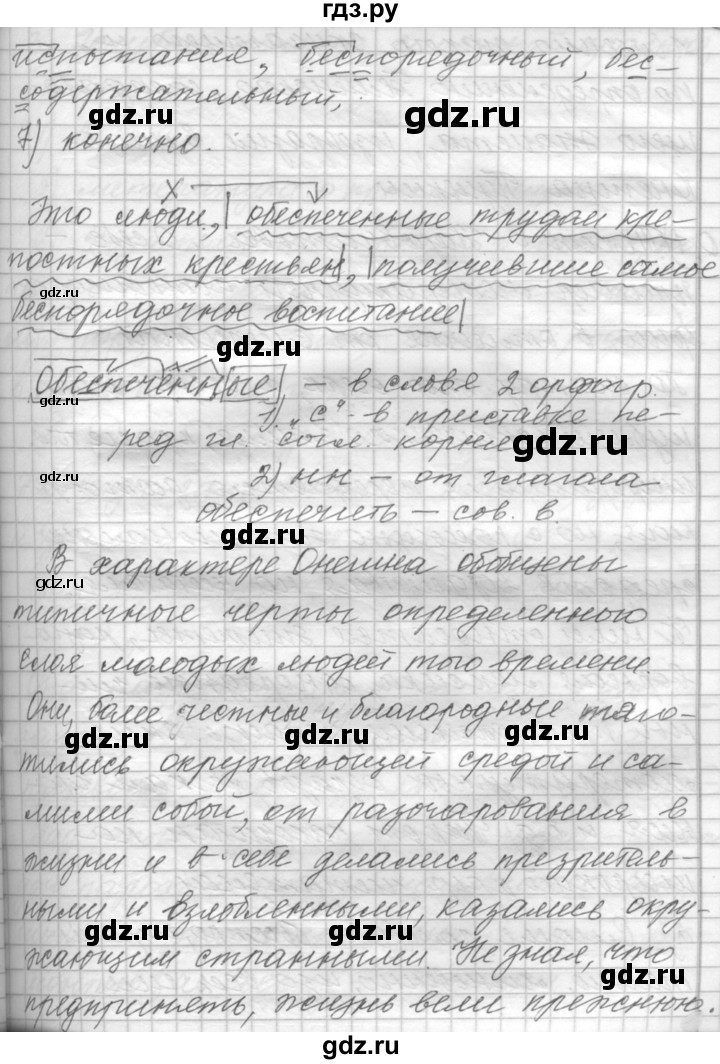 гдз.ру
испытания, беспорядочный, бес-
содержательный,
gdz.ru gdz.ru
7) конечно.
х
Это люди, | обеспеченные трудом кре-
постных крестьян|, |получившие самое
gdz.ru gdz.ru
беспорядочное воспитание|
gdz.ru
Обеспеченные – в слове 2 орфогр.
gdz.ru
1) „с" - в приставке пе-
ред гл. согл. корня
gdz.ru
2) нн – от глагола
gdz.ru
обеспечить – сов. в.
gdz.ru
В характере Онегина обобщены
gdz.ru
типичные черты определенного
слоя молодых людей того времени.
Они, более честные и благородные тяго-
gdz.ru gdz.ru gdz.ru
тились окружающей средой и са-
мими собой, от разочарования в
жизни и в себе делались презритель-
ными и взлобленными, казались окру-
gdz.ru gdz.ru
жающим странными. Не зная, что
gdz.ru
предпринять, жизнь вели прежнюю.
gdz.ru